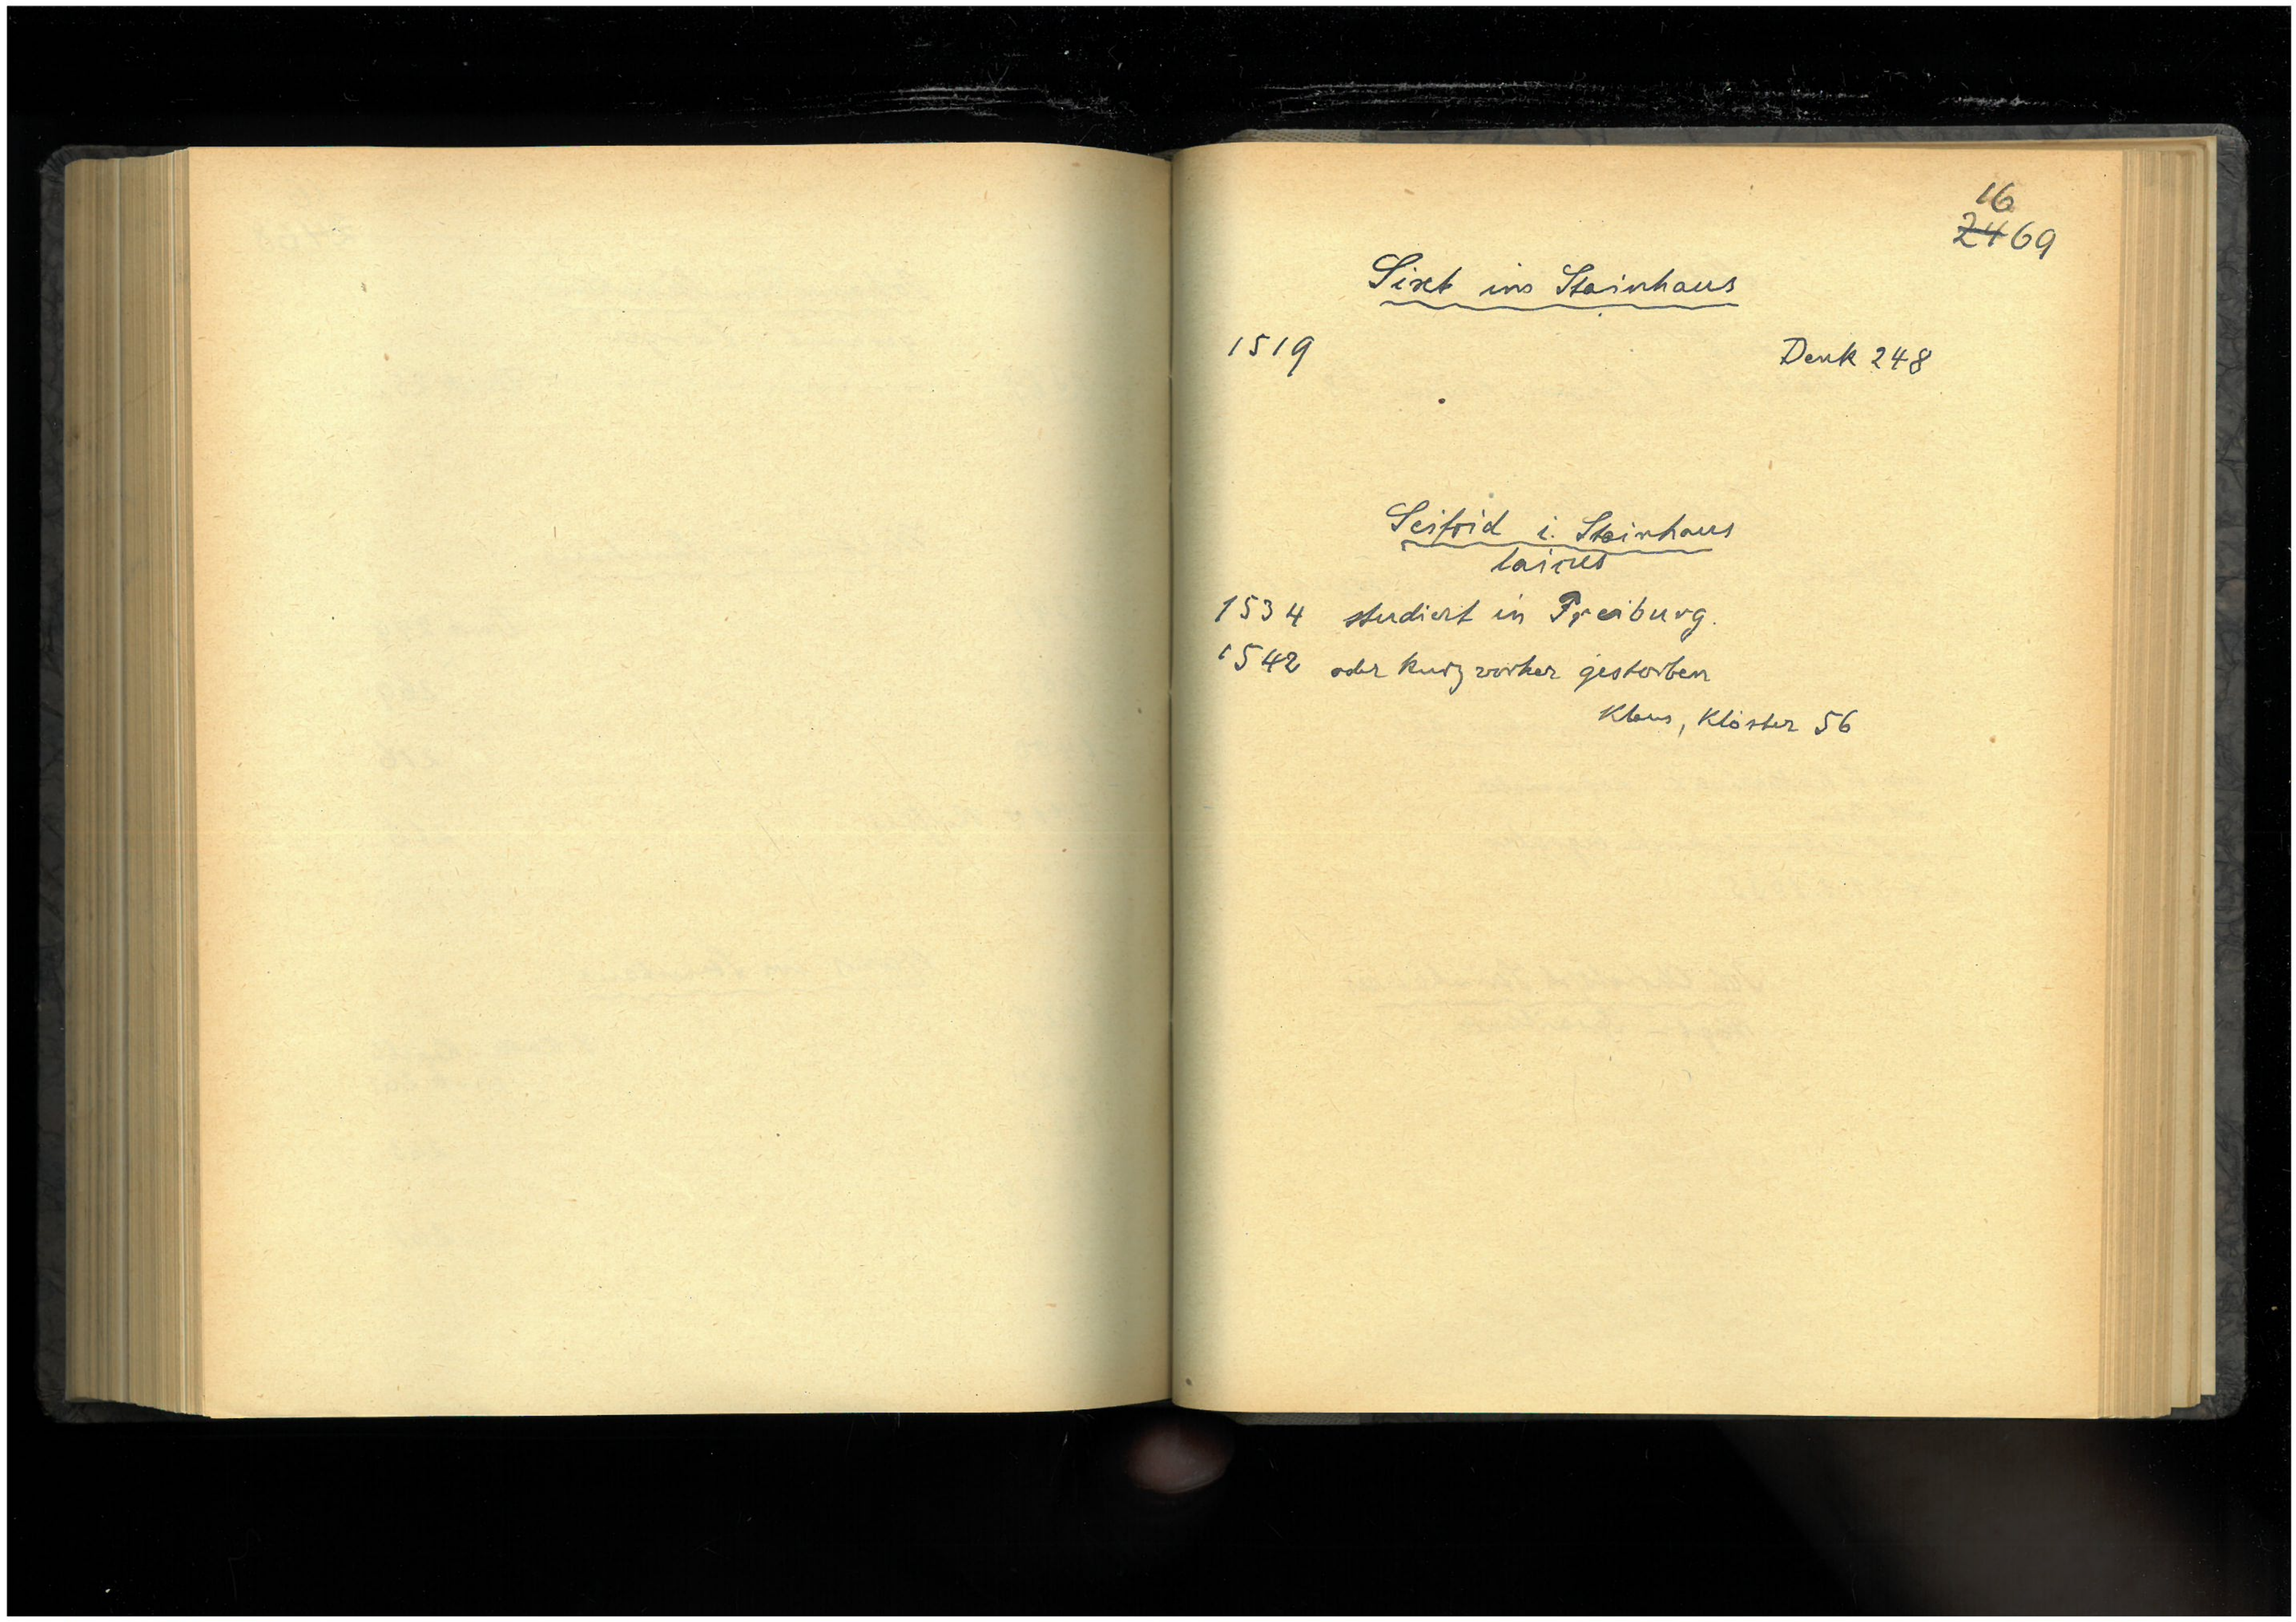 16
2469
Sixt im Steinhaus
1519 Denk 248
Seifrid i. Steinhaus
laicus
1534 studiert in Freiburg.
1542 oder kurz vorher gestorben
Klaus, Klöster 56